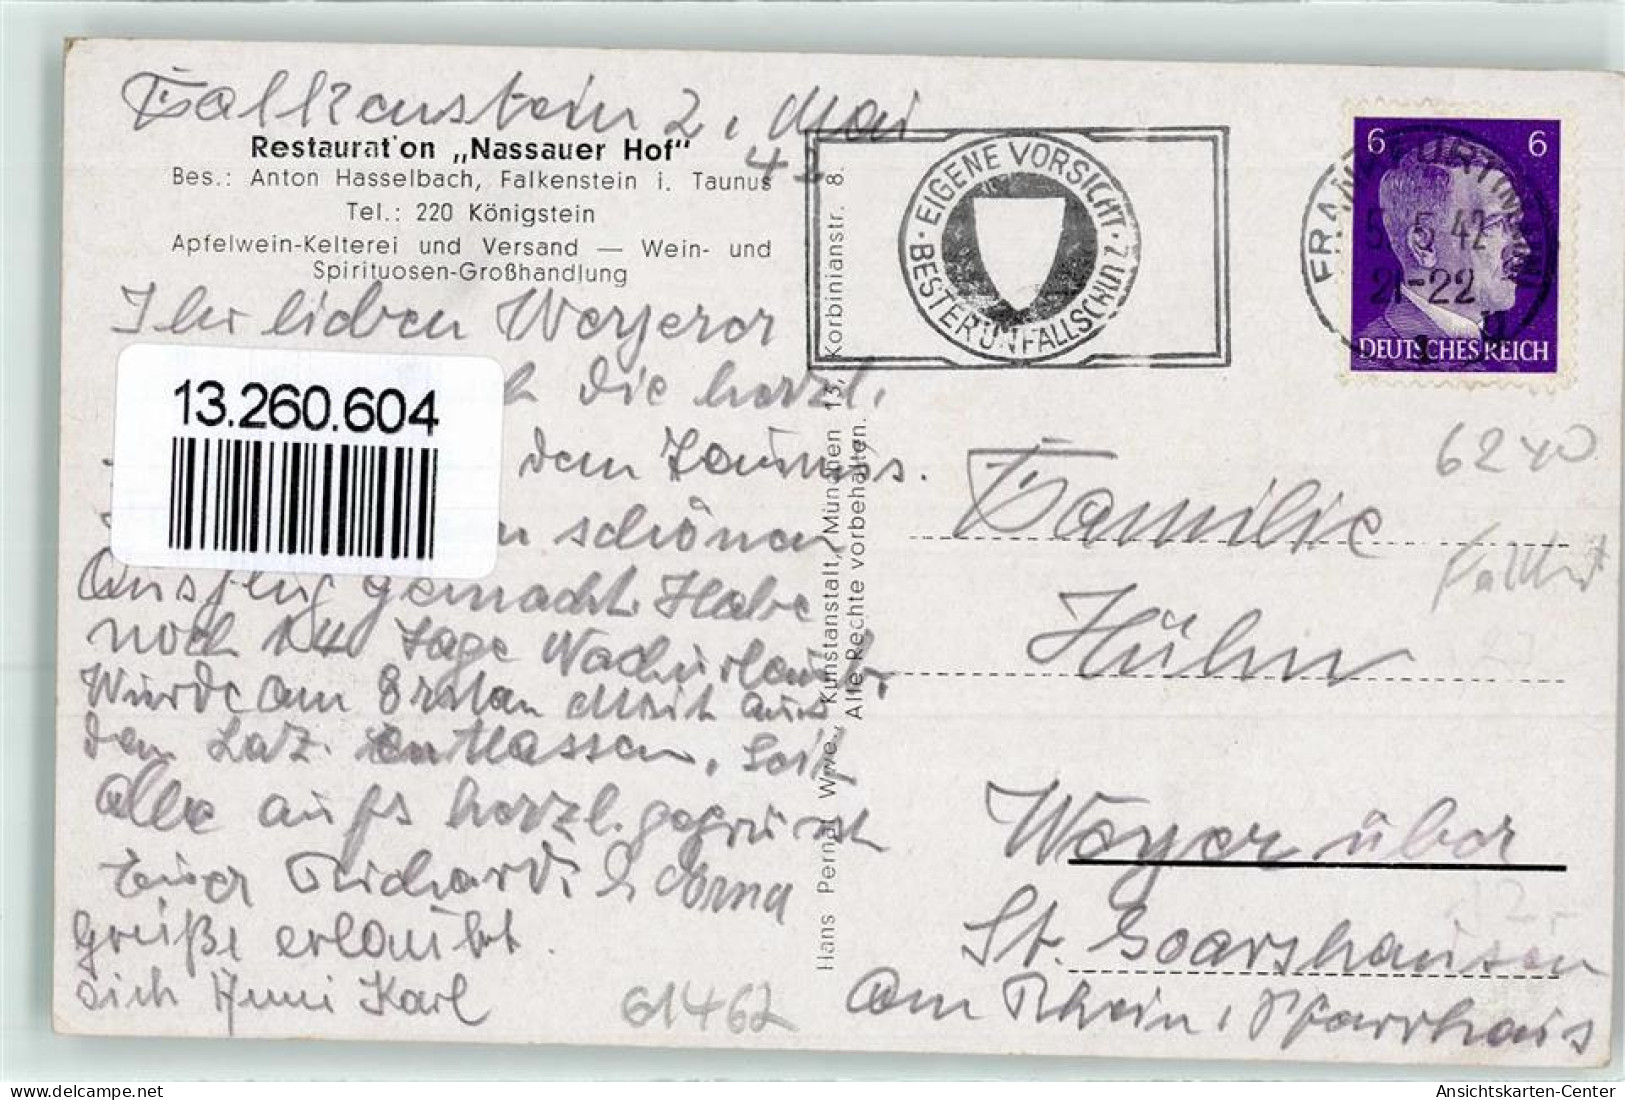 Falkenstein 2. Mai
42
Restaurat'on „Nassauer Hof"
Bes.: Anton Hasselbach, Falkenstein i. Taunus
Tel.: 220 Königstein
Apfelwein-Kelterei und Versand — Wein- und
Spirituosen-Großhandlung
Ihr lieben Weyerer
die herzl.
dem Taunus.
schönen
Ausflug gemacht. Habe
noch 14 Tage Nachurlaub.
Wurde am Ersten Mai aus
dem Laz. entlassen, Seit
alle aufs herzl. gegrüsst
Euer Richard. & Erna
Grüße erlaubt
sich Anni Karl
13.260.604
Hans Pernat Wwe., Kunstanstalt, München 13, Korbinianstr. 8.
Alle Rechte vorbehalten.
· EIGENE VORSICHT · BESTER UNFALLSCHUTZ
FRANKFURT (MAIN)
5.5.42
21-22
1
6 6
DEUTSCHES REICH
6240
Familie
Hühn
Weyer über
St. Goarshausen
am Rhein, Pfarrhaus
12.-
61462
Ansichtskarten-Center